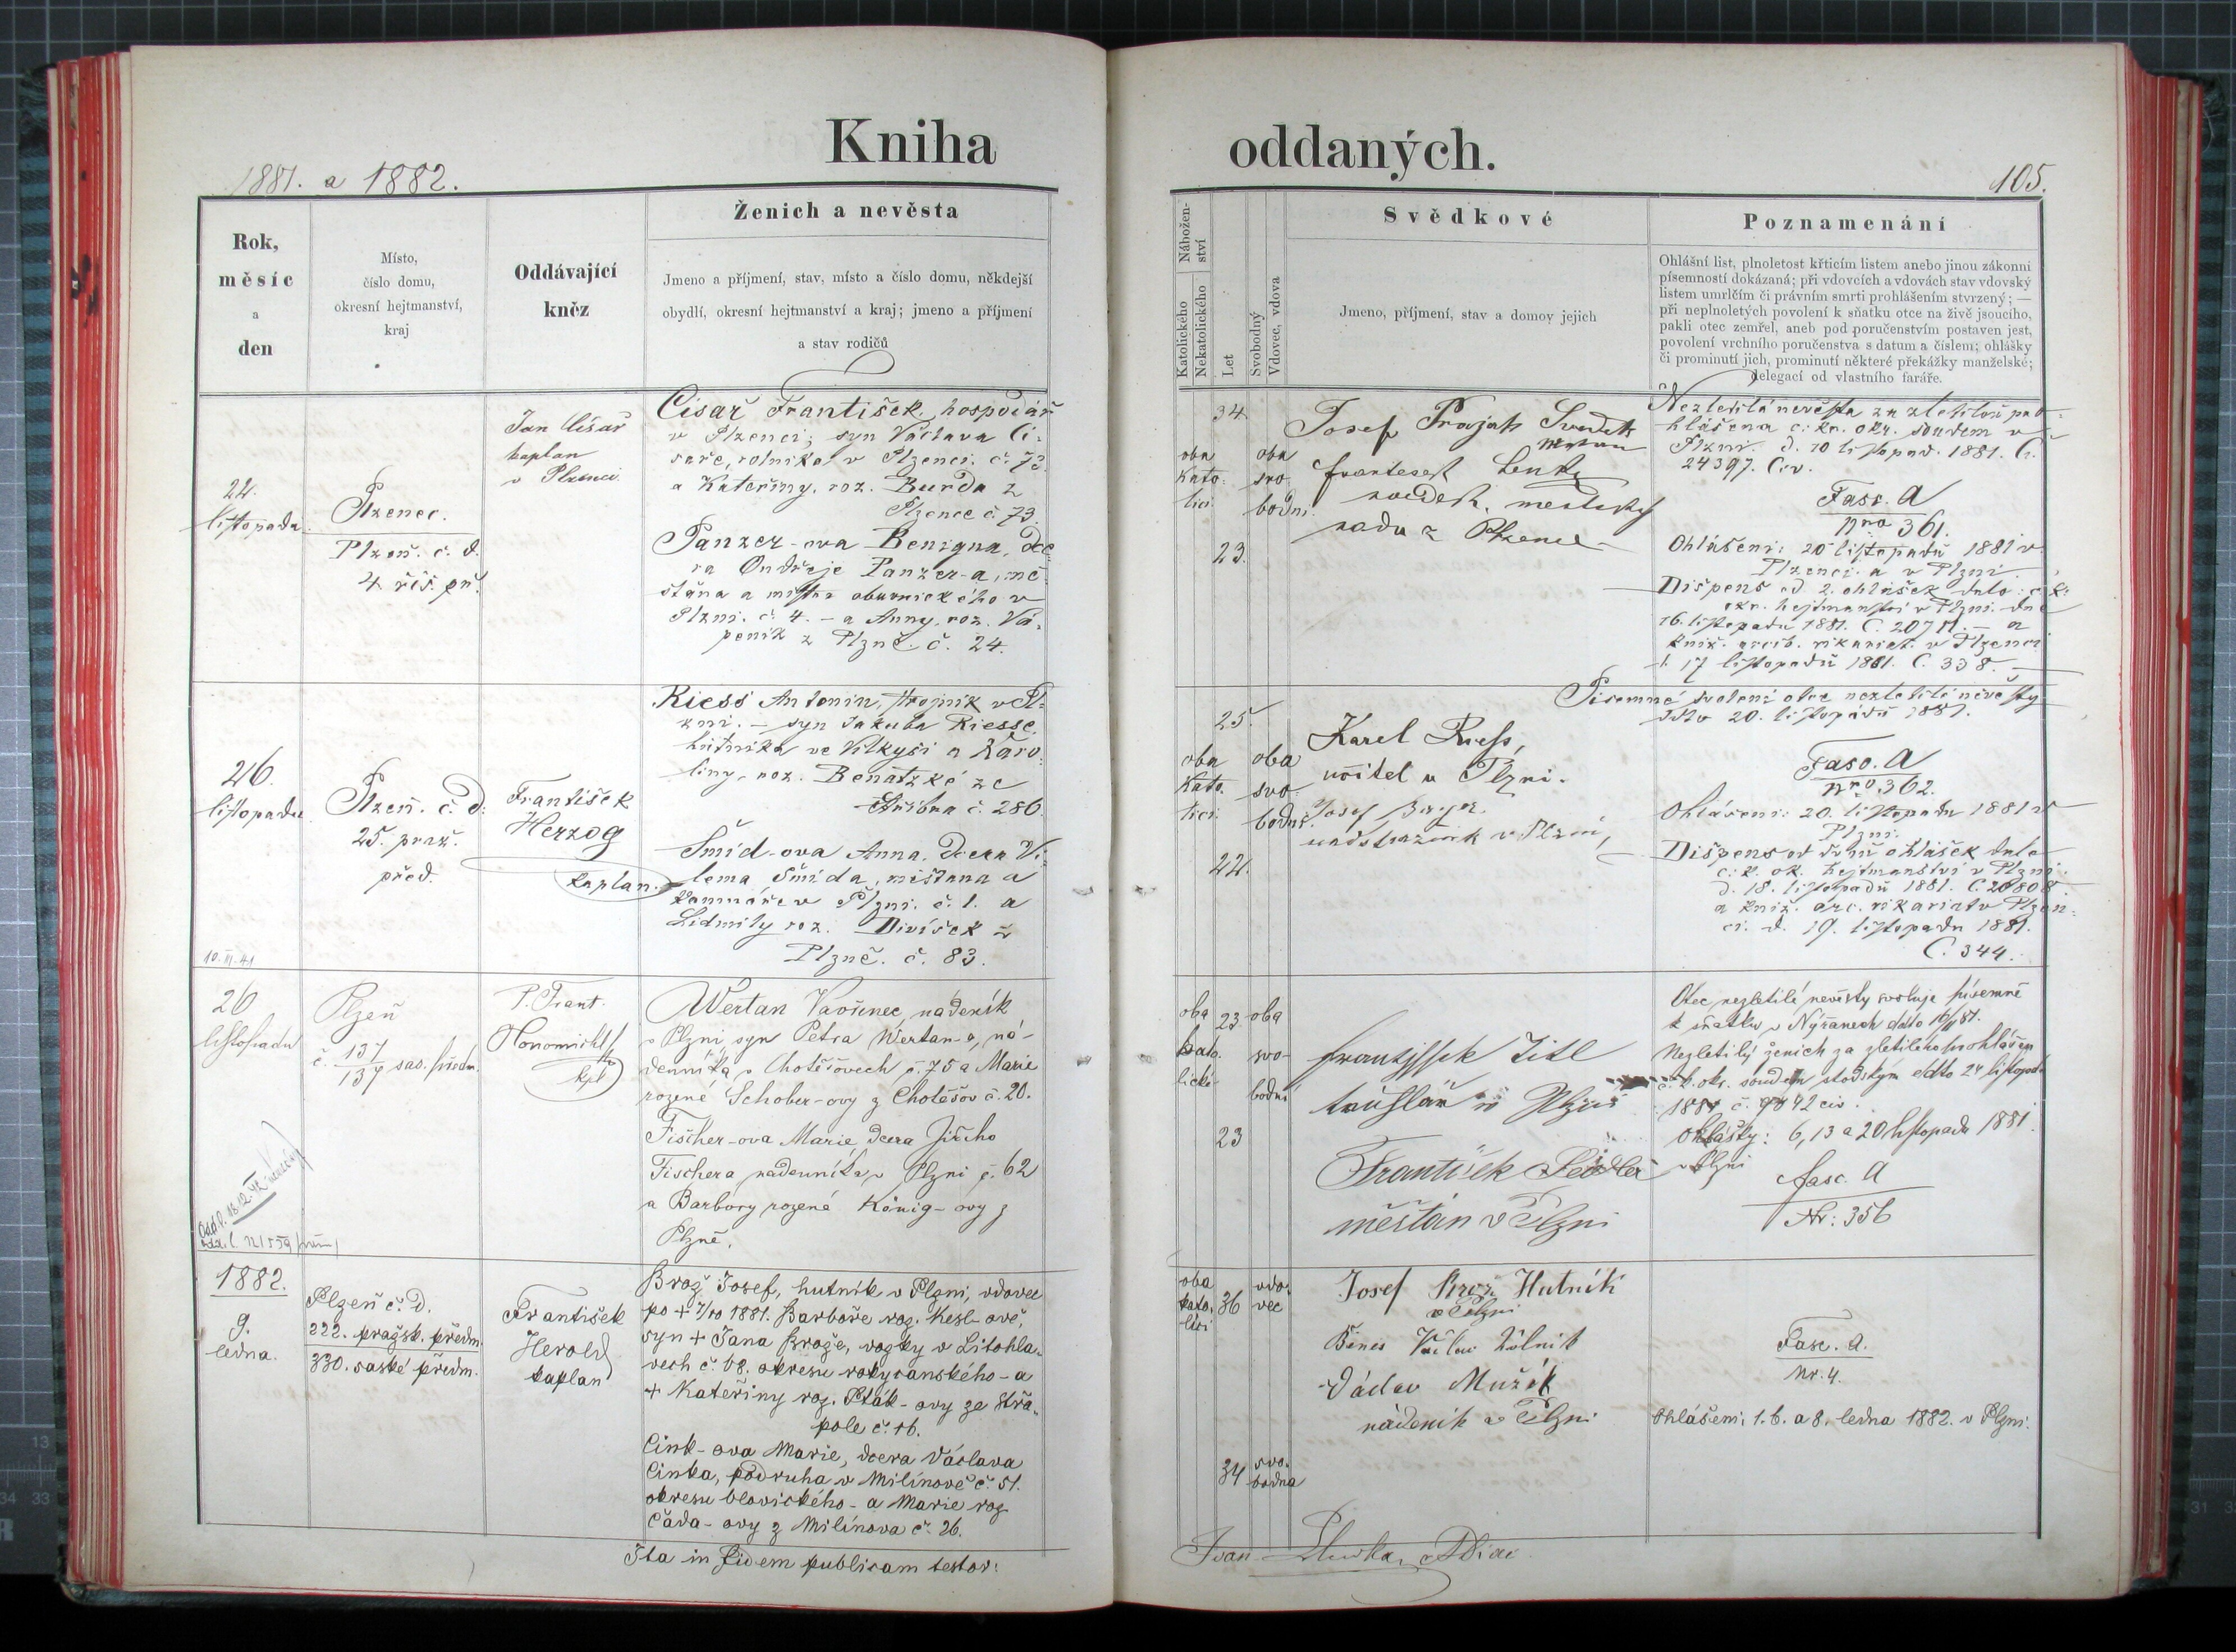 Kniha oddaných.
1881. a 1882.
105.
Rok,
měsíc
a
den
Místo,
číslo domu,
okresní hejtmanství,
kraj
Oddávající
kněz
Ženich a nevěsta
Jmeno a příjmení, stav, místo a číslo domu, někdejší
obydlí, okresní hejtmanství a kraj; jmeno a příjmení
a stav rodičů
Nábožen-
ství
Katolického
Nekatolického
Let
Svobodný
Vdovec, vdova
Svědkové
Jmeno, příjmení, stav a domov jejich
Poznamenání
Ohlášní list, plnoletost křticím listem anebo jinou zákonni
písemností dokázaná; při vdovcích a vdovách stav vdovský
listem umrlčím či právním smrti prohlášením stvrzený; —
při neplnoletých povolení k sňatku otce na živě jsoucího,
pakli otec zemřel, aneb pod poručenstvím postaven jest,
povolení vrchního poručenstva s datum a číslem; ohlášky
či prominutí jich, prominutí některé překážky manželské;
delegací od vlastního faráře.
22.
listopadu
Plzenec.
Plzeň. č. d.
4 říš. př.
Jan Císař
kaplan
v Plzenci
Císař František, hospodář
v Plzenci; syn Václava Cí-
saře, rolníka v Plzenci. č. 73
a Kateřiny, roz. Burda z
Plzence č. 73.
Panzer-ova Benigna, dce
ra Ondřeje Panzer-a, mě
šťana a mistra obuvnického v
Plzni. č. 4. – a Anny, roz. Vá-
peník z Plzně. č. 24.
34.
oba
kato-
líci
oba
svo-
bodni.
23.
Josef
František
z Plzence
Nezletilá nevěsta za zletilou pro-
hlášena c. kr. okr. soudem v
Plzni. d. 10 listopad. 1881. Č.
24397. Civ.
Fasc. A
nro 361.
Ohlášeni: 20 listopadu 1881 v
Plzenci a v Plzni.
Dispens od 2. ohlášek dato c. k.
okr. hejtmanství v Plzni. dne
16. listopadu 1881. Č. – a
kníž. arcib. vikariat. v Plzenci
d. 17 listopadu 1881. Č. 338.
26.
listopadu
Plzeň. č. d.
25. praž.
před.
František
Herzog
kaplan.
10. III. 41
Riess Antonín, strojník v Pl-
zni. – syn Jakuba Riesse,
hutníka ve Vlkyši a Karo-
liny, roz. Benatzké ze
Stříbra č. 286.
Šmíd-ova Anna. Dcera Vi-
lema Šmída, měšťana a
v Plzni. č. 1. a
Lidmily roz. Divíšek z
Plzně. č. 83.
25.
oba
kato-
líci.
oba
svo-
bodni.
22.
Karel Riess,
učitel v Plzni.
Josef
nadstrážník v Plzni,
Písemné svolení otce nezletilé nevěsty
ddto 20. listopádu 1881.
Fasc. A
nro 362.
Ohlášeni: 20. listopadu 1881 v
Plzni.
Dispens od dvou ohlášek dato
c. k. ok. hejtmanství v Plzni.
d. 18. listopadu 1881. Č. 20808.
a kníž. arc. vikariatu v Plzen-
ci. d. 19. listopadu 1881.
Č. 344.
26
listopadu
Plzeň
č. 137/137 sas. předm.
P. Frant.
kpl
Wertan Vavřinec, nádeník
v Plzni, syn Petra Wertan-a, ná-
denníka v Chotěšovech č. 75 a Marie
rozené Schober-ovy z Chotěšov č. 20.
Fischer-ova Marie, dcera Jiřího
Fischera nadenníka v Plzni č. 62
a Barbory rozené König-ovy z
Plzně.
oba
kato-
lické
23
oba
svo-
bodni
23
truhlář v Plzni
František
měšťan v Plzni
Otec nezletilé nevěsty svoluje písemně
k sňatku v Nýřanech ddto 16/11 81.
Nezletilý ženich za zletilého prohlášen
c. k. okr. soudem stodským ddto 24 listopadu
Ohlášky: 6, 13 a 20 listopadu 1881.
v Plzni
Fasc. A
Nr: 356
1882.
9.
ledna.
Plzeň č. D.
222. pražsk. předm.
330. saské předm.
František
Herold
kaplan
Brož Josef, hutník v Plzni, vdovec
po + 7/10 1881. Barboře roz. Kesl-ově,
syn + Jana Brože, vozky v Litohla-
vech č. 68. okresu rokycanského – a
+ Kateřiny roz. Pták-ovy ze Stra-
pole č. 16.
Cink-ova Marie, dcera Václava
Cinka, podruha v Milínově č. 51.
okresu blovického – a Marie roz.
Čada-ovy z Milínova č. 26.
oba
kato-
líci
36
vdo-
vec
34
svo-
bodna
Josef Brož Hutník
v Plzni
Václav Mužík
nádeník v Plzni
Fasc. A.
Nr. 4.
Ohlášeni 1. 6. a 8. ledna 1882. v Plzni.
Ita in fidem publicam testor: